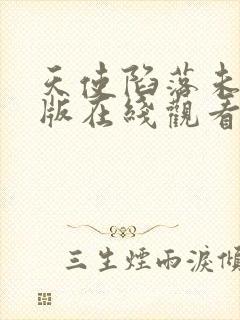 天使陷落未
版在綫觀看
三生煙雨淚傾